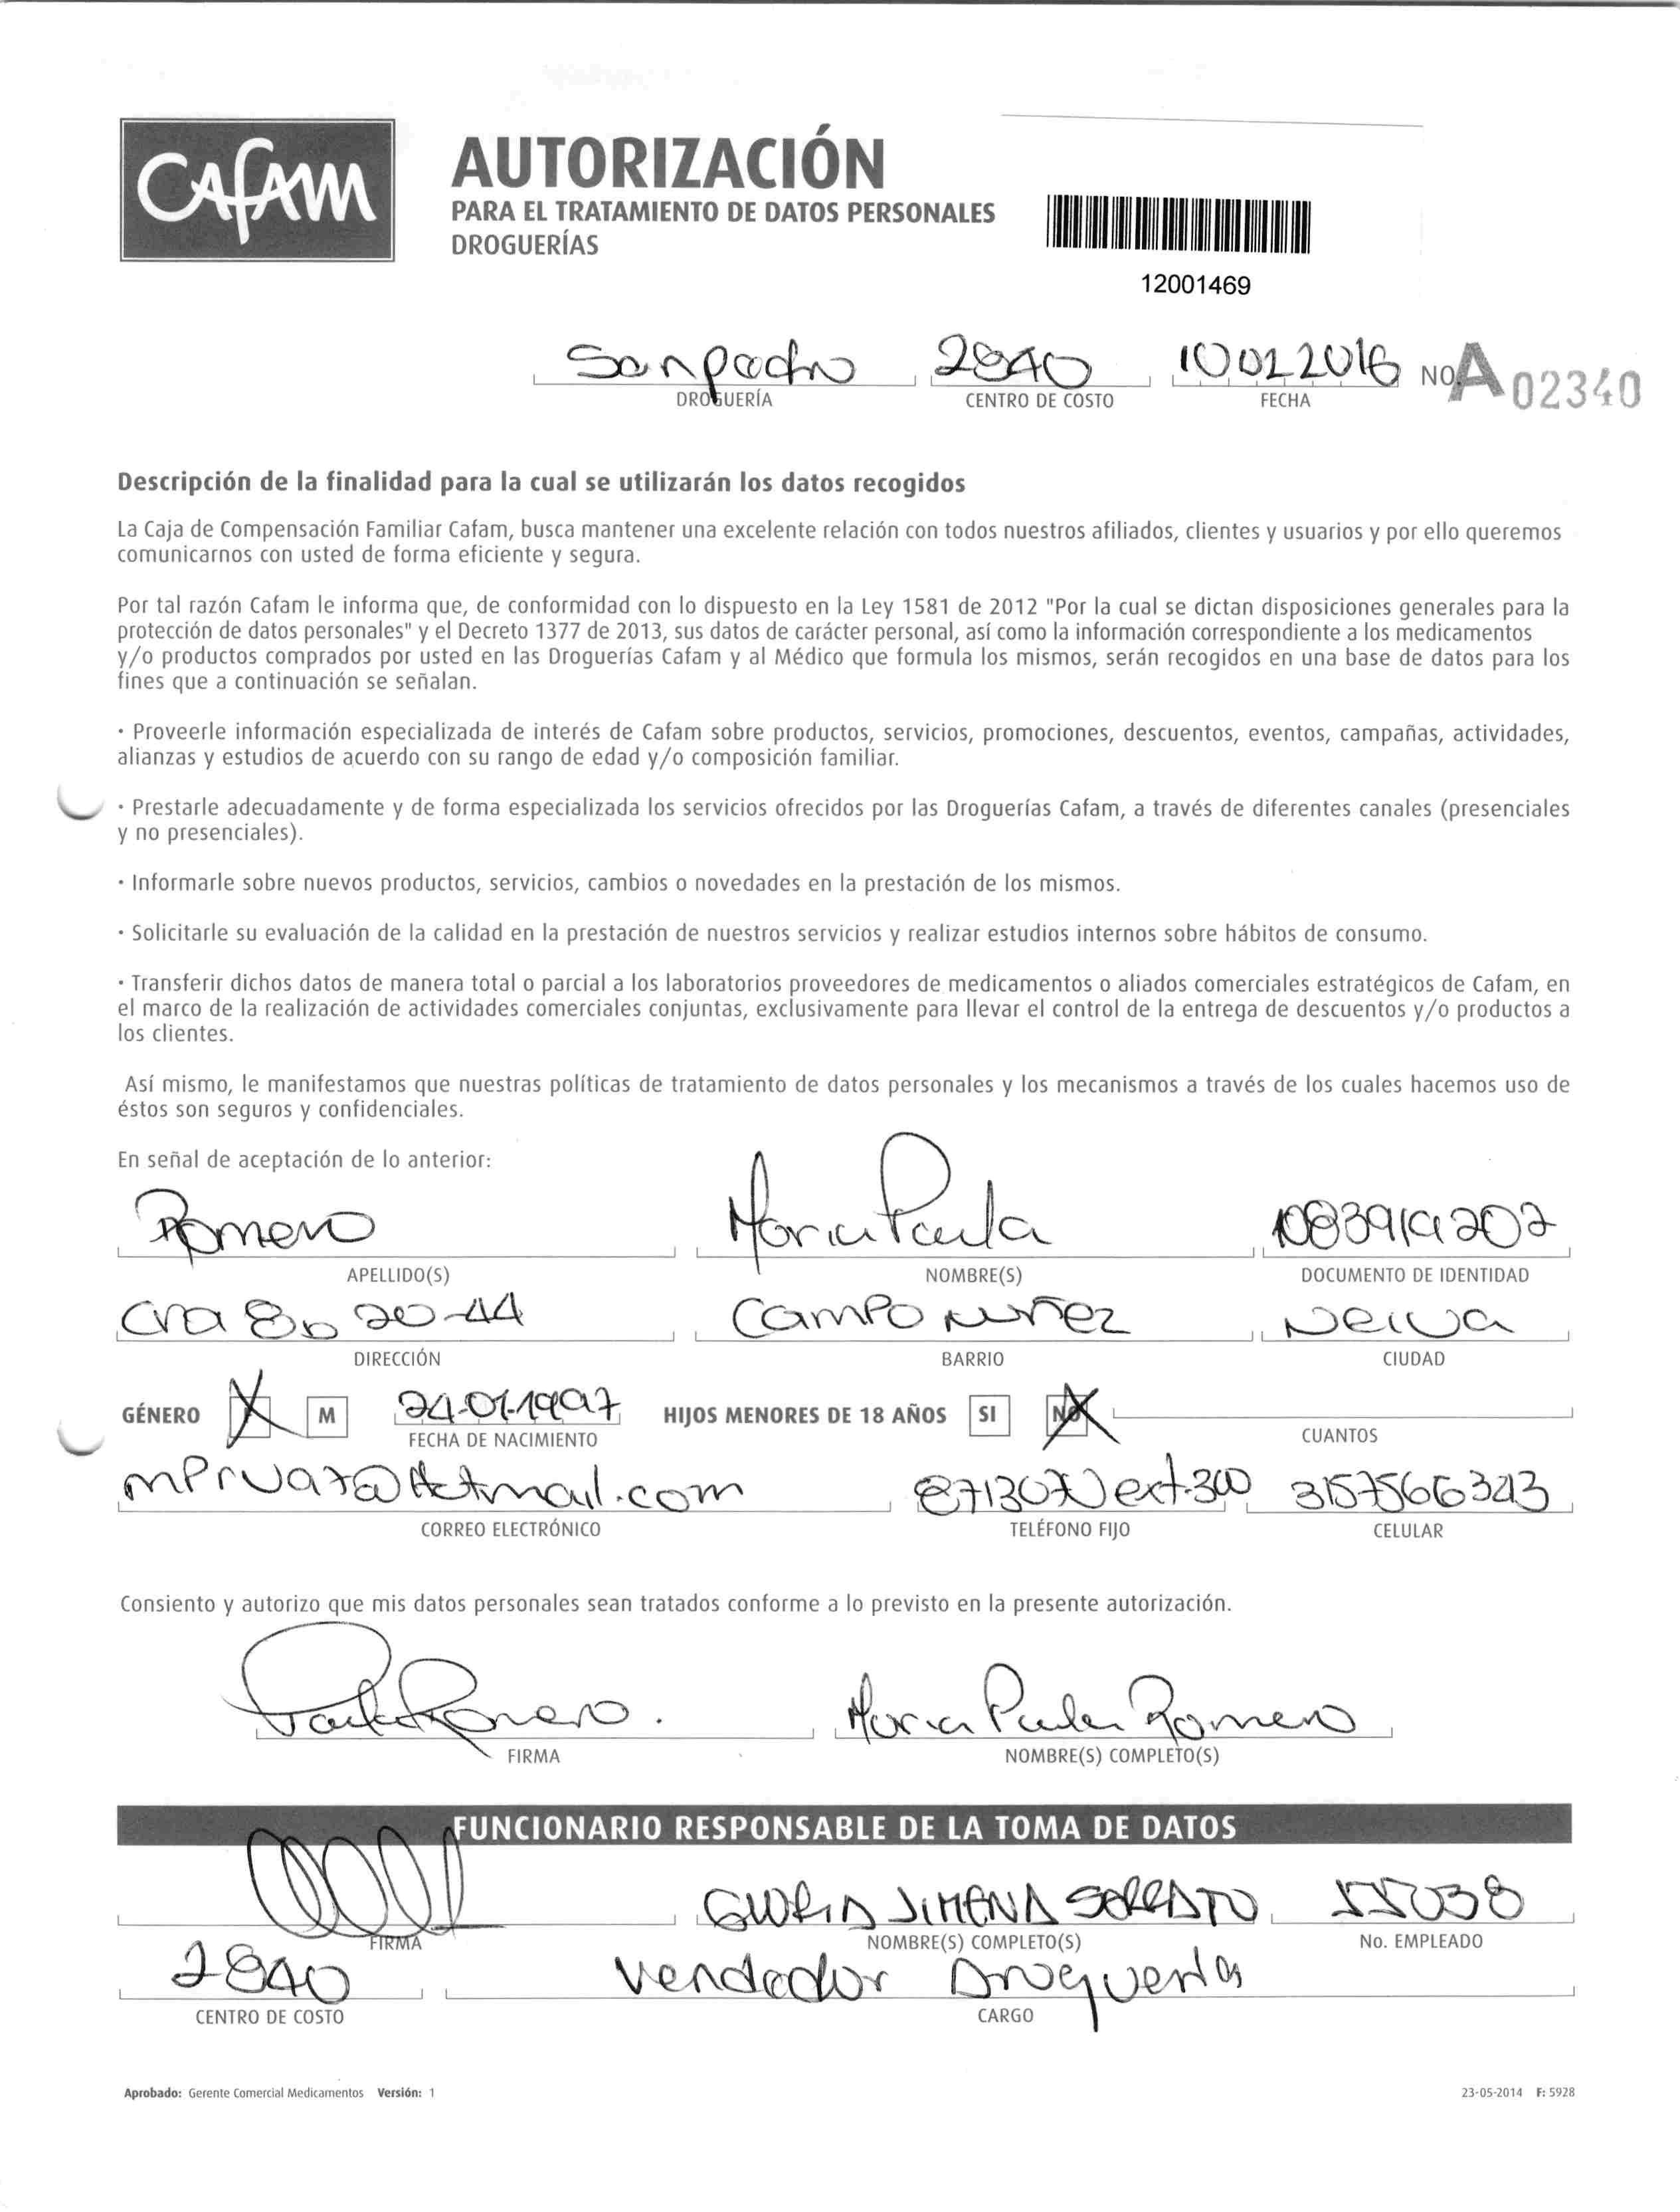 CAFAM
AUTORIZACIÓN
PARA EL TRATAMIENTO DE DATOS PERSONALES
DROGUERÍAS
12001469
Sanpedro 2840 10 02 2016 NO. A 02340
DROGUERÍA CENTRO DE COSTO FECHA
Descripción de la finalidad para la cual se utilizarán los datos recogidos
La Caja de Compensación Familiar Cafam, busca mantener una excelente relación con todos nuestros afiliados, clientes y usuarios y por ello queremos
comunicarnos con usted de forma eficiente y segura.
Por tal razón Cafam le informa que, de conformidad con lo dispuesto en la Ley 1581 de 2012 "Por la cual se dictan disposiciones generales para la
protección de datos personales" y el Decreto 1377 de 2013, sus datos de carácter personal, así como la información correspondiente a los medicamentos
y/o productos comprados por usted en las Droguerías Cafam y al Médico que formula los mismos, serán recogidos en una base de datos para los
fines que a continuación se señalan.
· Proveerle información especializada de interés de Cafam sobre productos, servicios, promociones, descuentos, eventos, campañas, actividades,
alianzas y estudios de acuerdo con su rango de edad y/o composición familiar.
· Prestarle adecuadamente y de forma especializada los servicios ofrecidos por las Droguerías Cafam, a través de diferentes canales (presenciales
y no presenciales).
· Informarle sobre nuevos productos, servicios, cambios o novedades en la prestación de los mismos.
· Solicitarle su evaluación de la calidad en la prestación de nuestros servicios y realizar estudios internos sobre hábitos de consumo.
· Transferir dichos datos de manera total o parcial a los laboratorios proveedores de medicamentos o aliados comerciales estratégicos de Cafam, en
el marco de la realización de actividades comerciales conjuntas, exclusivamente para llevar el control de la entrega de descuentos y/o productos a
los clientes.
Así mismo, le manifestamos que nuestras políticas de tratamiento de datos personales y los mecanismos a través de los cuales hacemos uso de
éstos son seguros y confidenciales.
En señal de aceptación de lo anterior:
Romero Maria Paula
APELLIDO(S) NOMBRE(S) DOCUMENTO DE IDENTIDAD
Cra 8b 20-44 Campo Nuñez Neiva
DIRECCIÓN BARRIO CIUDAD
GÉNERO M 24-01-1997 HIJOS MENORES DE 18 AÑOS SI NO
FECHA DE NACIMIENTO CUANTOS
8713070 ext.300 3157566323
CORREO ELECTRÓNICO TELÉFONO FIJO CELULAR
Consiento y autorizo que mis datos personales sean tratados conforme a lo previsto en la presente autorización.
Paula Romero. Maria Paula Romero
FIRMA NOMBRE(S) COMPLETO(S)
FUNCIONARIO RESPONSABLE DE LA TOMA DE DATOS
GLORIA JIMENA 55038
FIRMA NOMBRE(S) COMPLETO(S) No. EMPLEADO
2840 Vendedor Droguerias
CENTRO DE COSTO CARGO
Aprobado: Gerente Comercial Medicamentos Versión: 1 23-05-2014 F: 5928